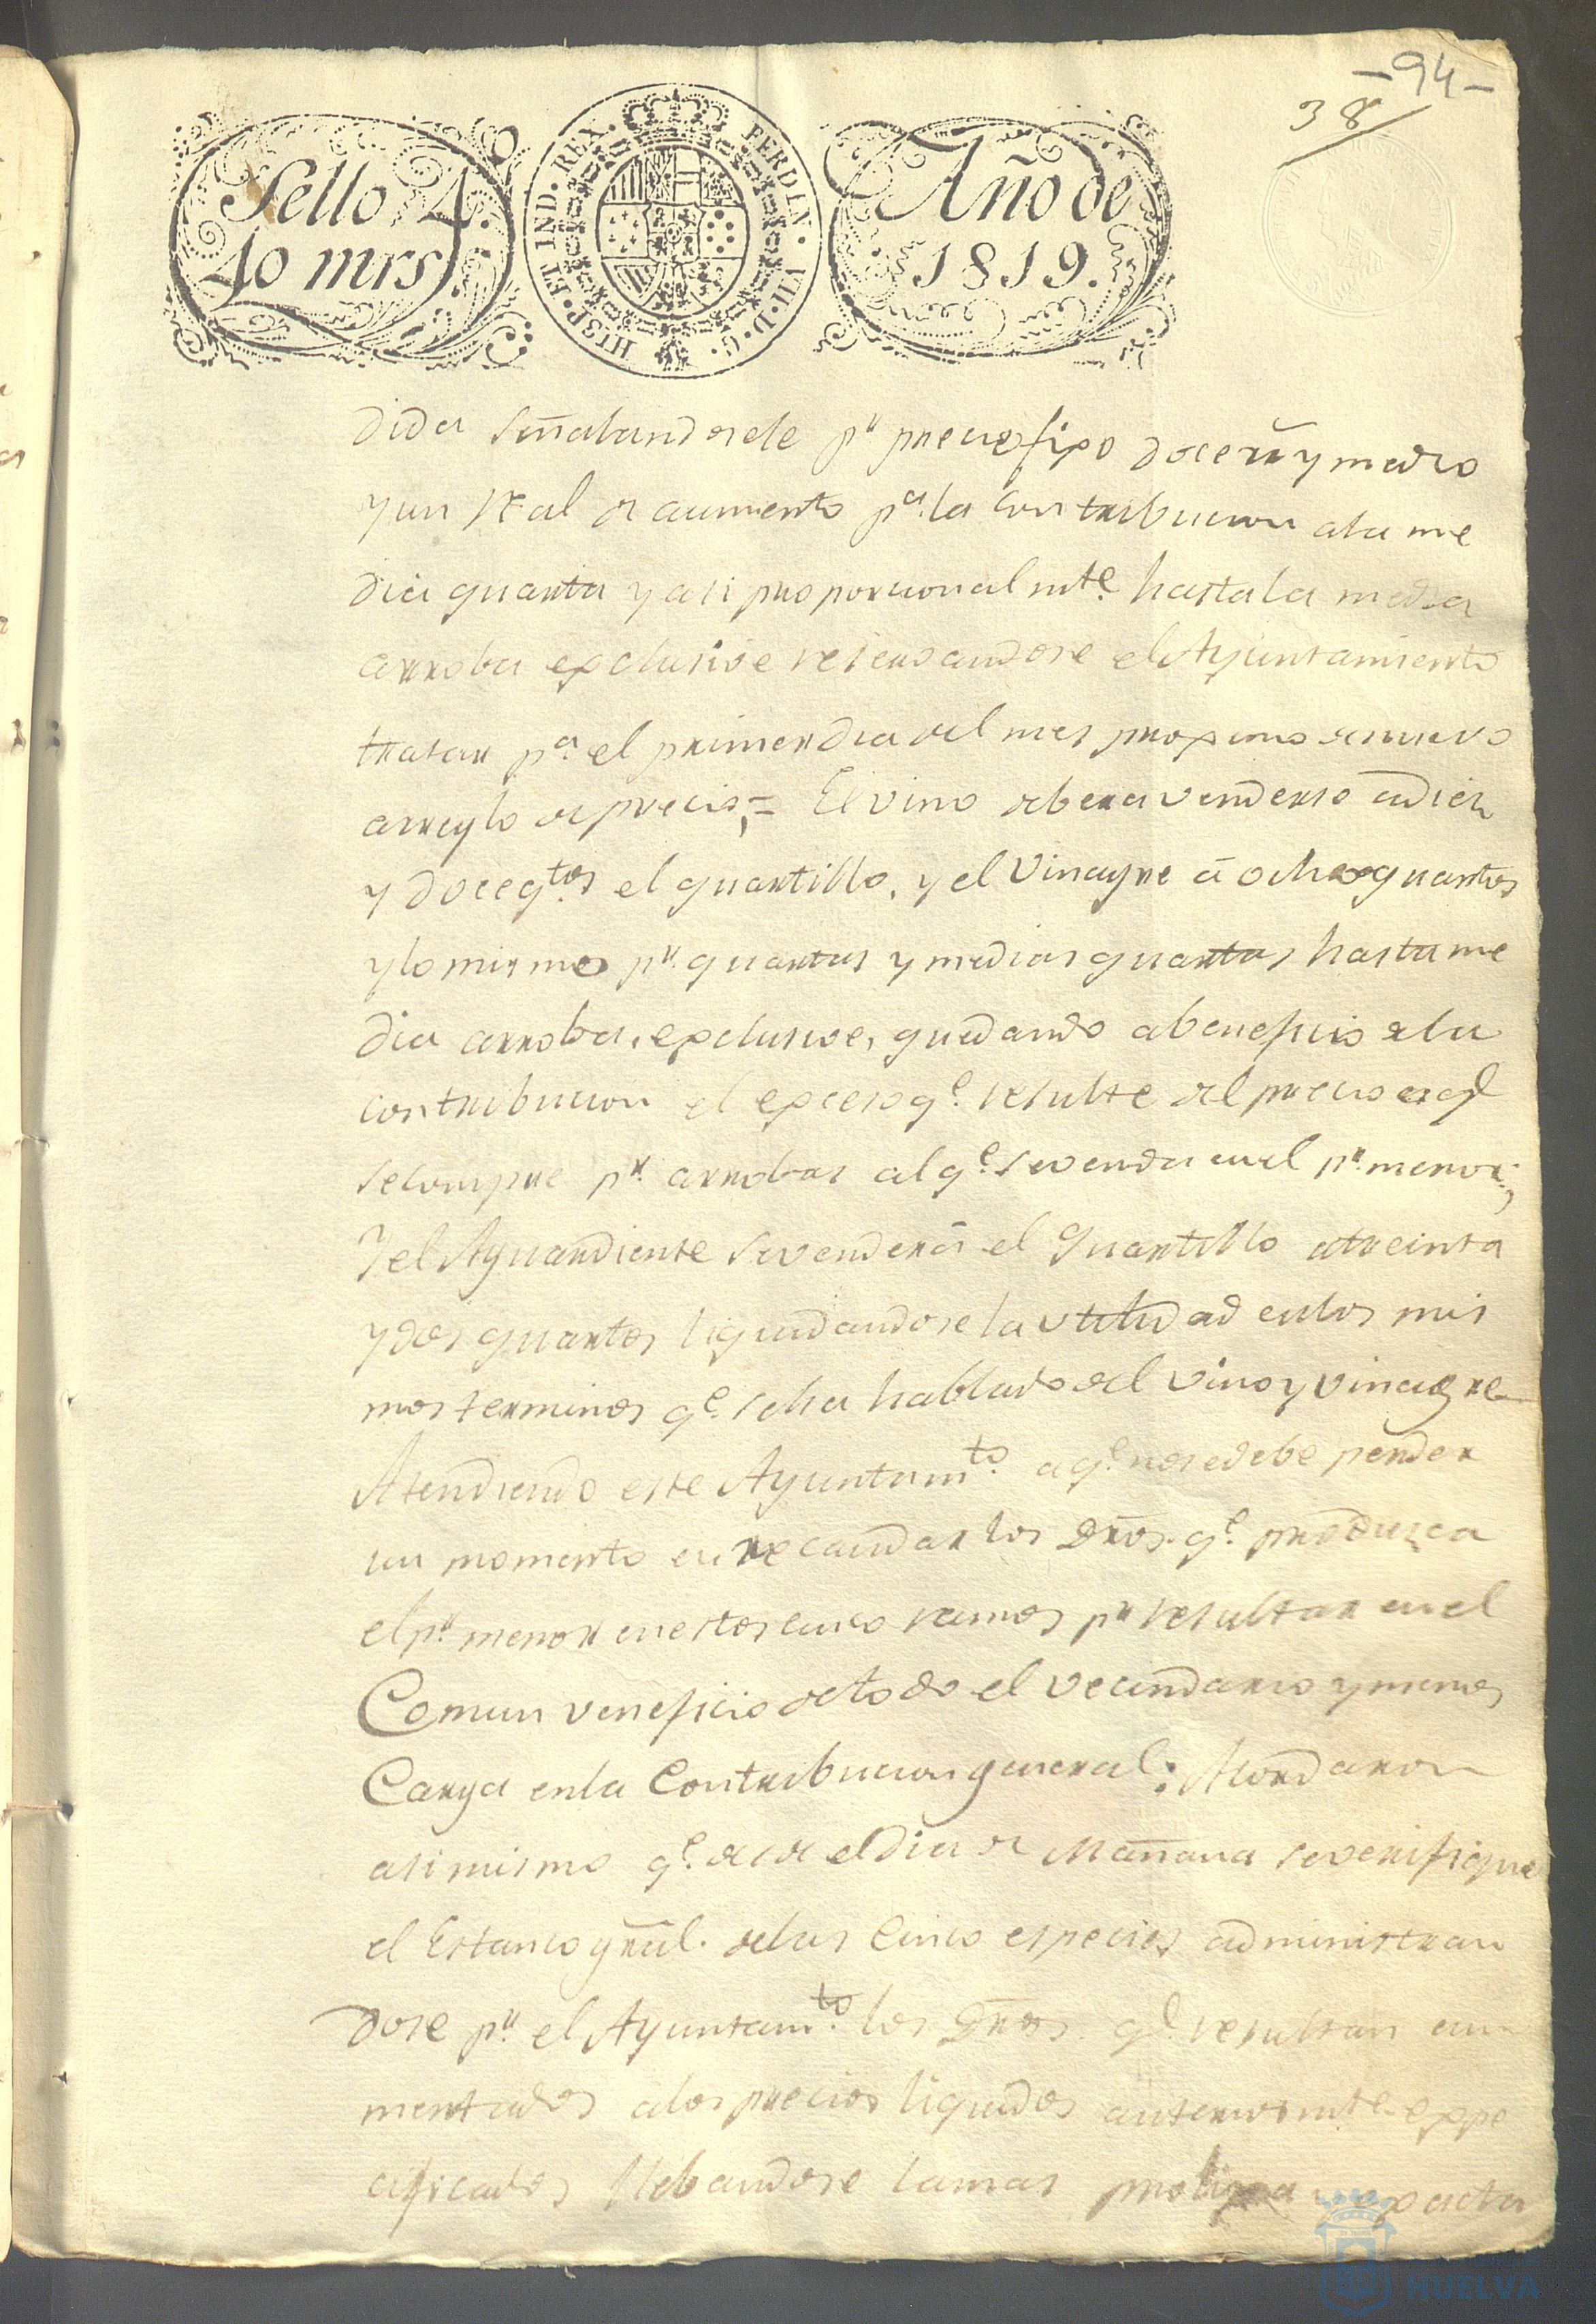 -94-
38
Sello 4.
40 mrs.
HISP. ET IND. REX. FERDIN. VII. D. G.
Año de
1819.
dida señalandosele pr precio fixo doce rr y medio
y un Real de aumento pa. la contribucion ala me
dia quarta y asi proporcionalmte. hasta la media
arroba exclusive reservandose el Ayuntamiento
tratar pa. el primer dia del mes proximo de nuevo
arreglo de precio,= El vino debera venderse a diez
y doce qtos. el quartillo, y el Vinagre á ocho quartos
y lo mismo pr. quartas y medias quartas hasta me
dia arroba, exclusive, quedando a beneficio de la
contribucion el exceso qe. resulte del precio a qe
se compre pr. arrobas al qe. se venda en el pr. menor;
Y el Aguardiente se venderá el quartillo a treinta
y dos quartos liquidandose la utilidad en los mis
mos terminos qe. se ha hablado del vino y vinagre
Atendiendo este Ayuntamto. a qe. no se debe perder
un momento en recaudar los Dros. qe. produzca
el pr. menor en estos cinco ramos pr resultar en el
Comun veneficio de todo el vecindario y menos
Carga en la Contribucion general; Acordaron
asimismo qe. desde el dia de Mañana se verifique
el Estanco gral. de las Cinco especies administran
dose pr. el Ayuntamto. los Dros. qe. resultan au
mentados a los precios liquidos anteriormte. expe
cificados llebandose la mas prolixa exacta
HUELVA